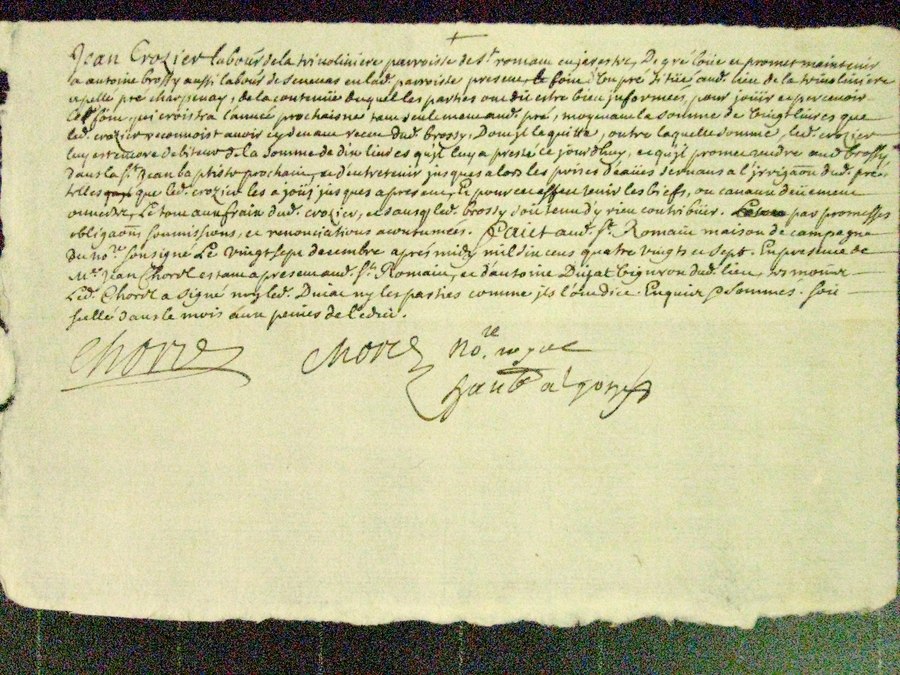 Jean Crozier labour de la trivoliniere parroisse de St. romain en jarestz, De gré loüe et promet maintenir
a antoine brossy aussi labour de senevas en lad. parroisse present, le foin du pré situé aud. lieu de la trivoliniere
apellé pré charpenay, de la contenüe duquel les parties ont dit estre bien informées, pour joüir et percevoir
led. foin, qui croistra l'année prochaine tant seulement aud. pré, moyenant la somme de vingt livres que
led. crozier reconnoist avoir cydevant receue dud. brossy, Dont il le quitte, outre laquelle somme, led. crozier
luy est encore debiteur de la somme de dix livres qu'jl luy a presté ce jourdhuy, et qu'jl promet rendre aud. brossy
dans la St. jean baptiste prochain, et d'entretenir jusques alors les prises d'eaües servans a l'jrrigaon dud. pré
telles que led. crozier les a joüy jusques apresent, Et pour cet effect tenir les biefs, ou canaux deüement
ouverts, Le tout aux fraix dud. crozier, et sans que led. brossy soit tenu d'y rien contribüer. par promesses
obligaons soumissions, et renonciations acoutumées. Faict aud. St. Romain maison de campagne
Du nore. soussigné Le vingt sept decembre aprés midy mil six cens quatre vingts et sept. En presence de
Mre. Jean Chorel estant apresent aud. St. Romain, et d'antoine Duzat vigneron dud. lieu, tesmoins
Led. Chorel a signé non led. Duzat ny les parties comme jls l'ont dict. Enquis et sommés. soit
scellé dans le mois aux peines de l'edict.
Chorel Chorel nore. royal